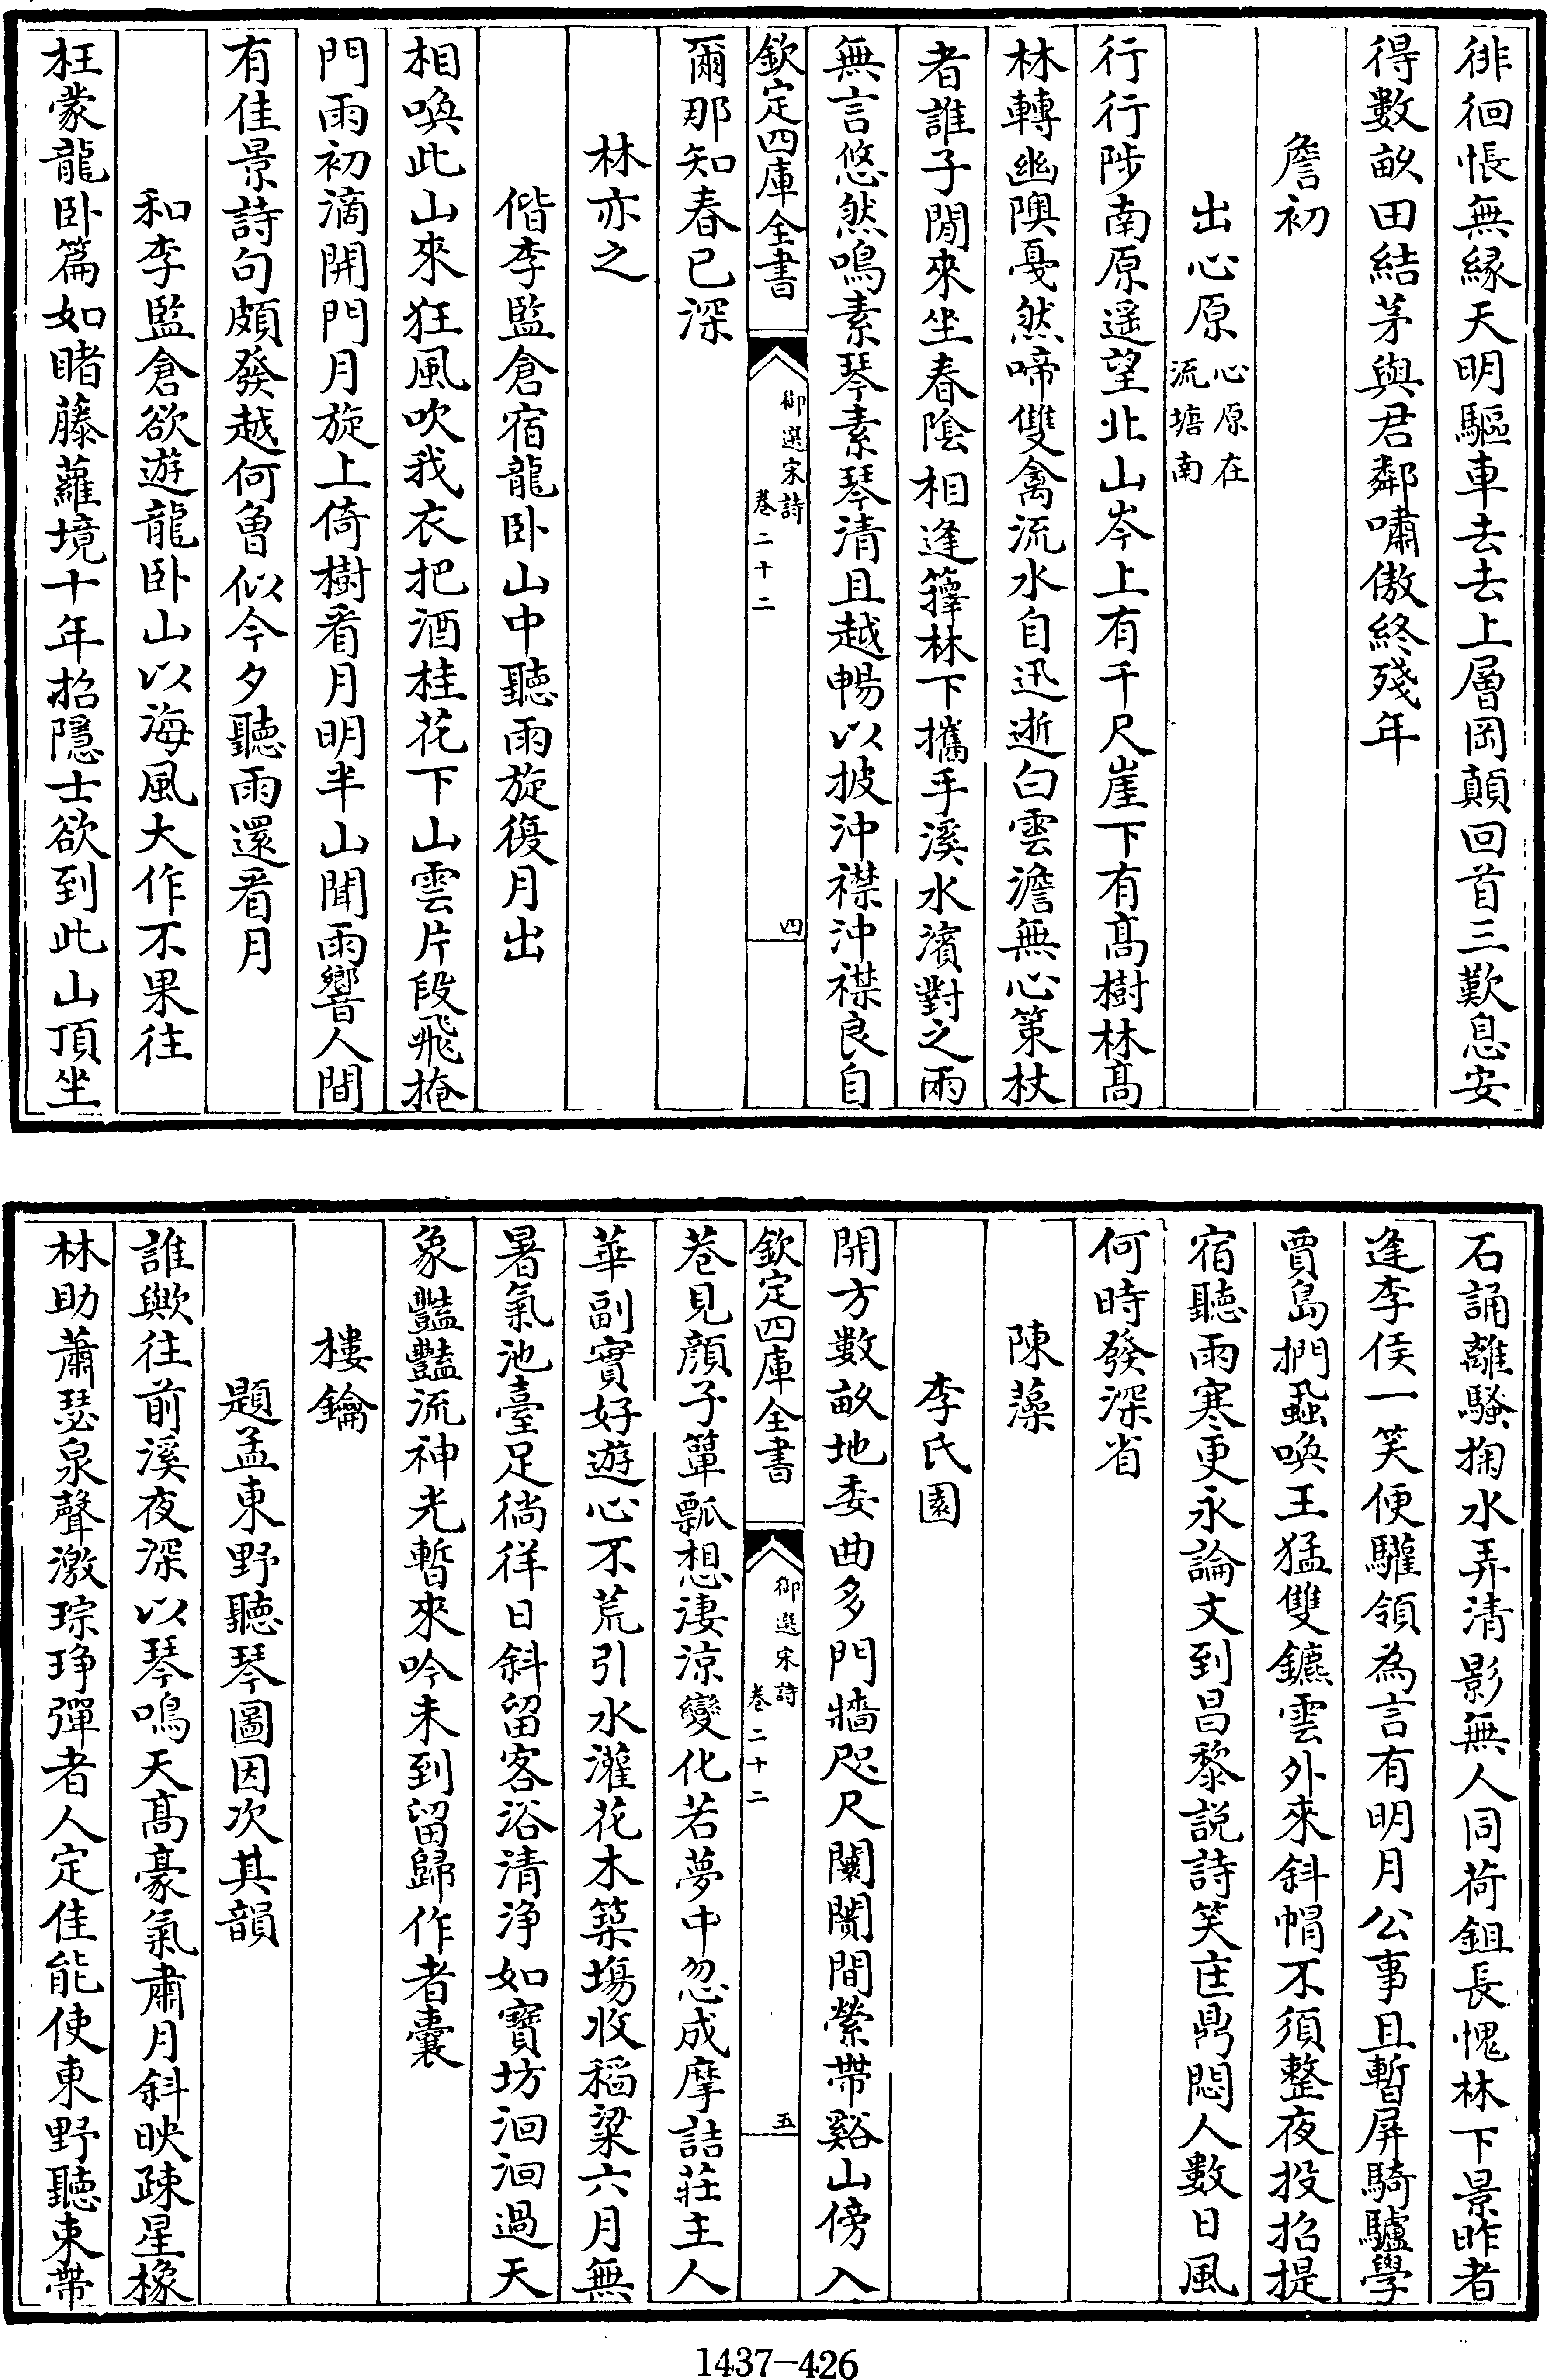 徘徊悵無緣天明驅車去去上層岡顛回首三歎息安
得數畝田結茅與君鄰嘯傲終殘年
詹初
出心原心原在流塘南
行行陟南原遥望北山岑上有千尺崖下有髙樹林髙
林轉幽隩戛然啼雙禽流水自迅逝白雲澹無心策杖
者誰子閒來坐春隂相逢籜林下攜手溪水濱對之兩
無言悠然鳴素琴素琴清且越暢以披沖襟沖襟良自
欽定四庫全書 御選宋詩 卷二十二 四
爾那知春已深
林亦之
偕李監倉宿龍卧山中聽雨旋復月出
相喚此山來狂風吹我衣把酒桂花下山雲片段飛掩
門雨初滴開門月旋上倚樹看月明半山聞雨響人間
有佳景詩句頗發越何曾似今夕聽雨還看月
和李監倉欲遊龍卧山以海風大作不果往
枉蒙龍卧篇如睹藤蘿境十年招隱士欲到此山頂坐
石誦離騷掬水弄清影無人同荷鉏長愧林下景昨者
逢李侯一笑便驩領為言有明月公事且暫屏騎驢學
賈島捫蝨喚王猛雙鑣雲外來斜帽不須整夜投招提
宿聽雨寒更永論文到昌黎說詩笑匡鼎悶人數日風
何時發深省
陳藻
李氏園
開方數畝地委曲多門牆咫尺闤闠間縈帶谿山傍入
欽定四庫全書 御選宋詩 卷二十二 五
巷見顔子簞瓢想淒涼變化若夢中忽成摩詰莊主人
華副實好遊心不荒引水灌花木築塲收稻粱六月無
暑氣池臺足徜徉日斜留客浴清浄如寶坊洄洄過天
象豔豔流神光暫來吟未到留歸作者囊
樓鑰
題孟東野聽琴圖因次其韻
誰歟往前溪夜深以琴鳴天髙豪氣肅月斜映疎星橡
林助蕭瑟泉聲激琮琤彈者人定佳能使東野聽束帶
1437-426